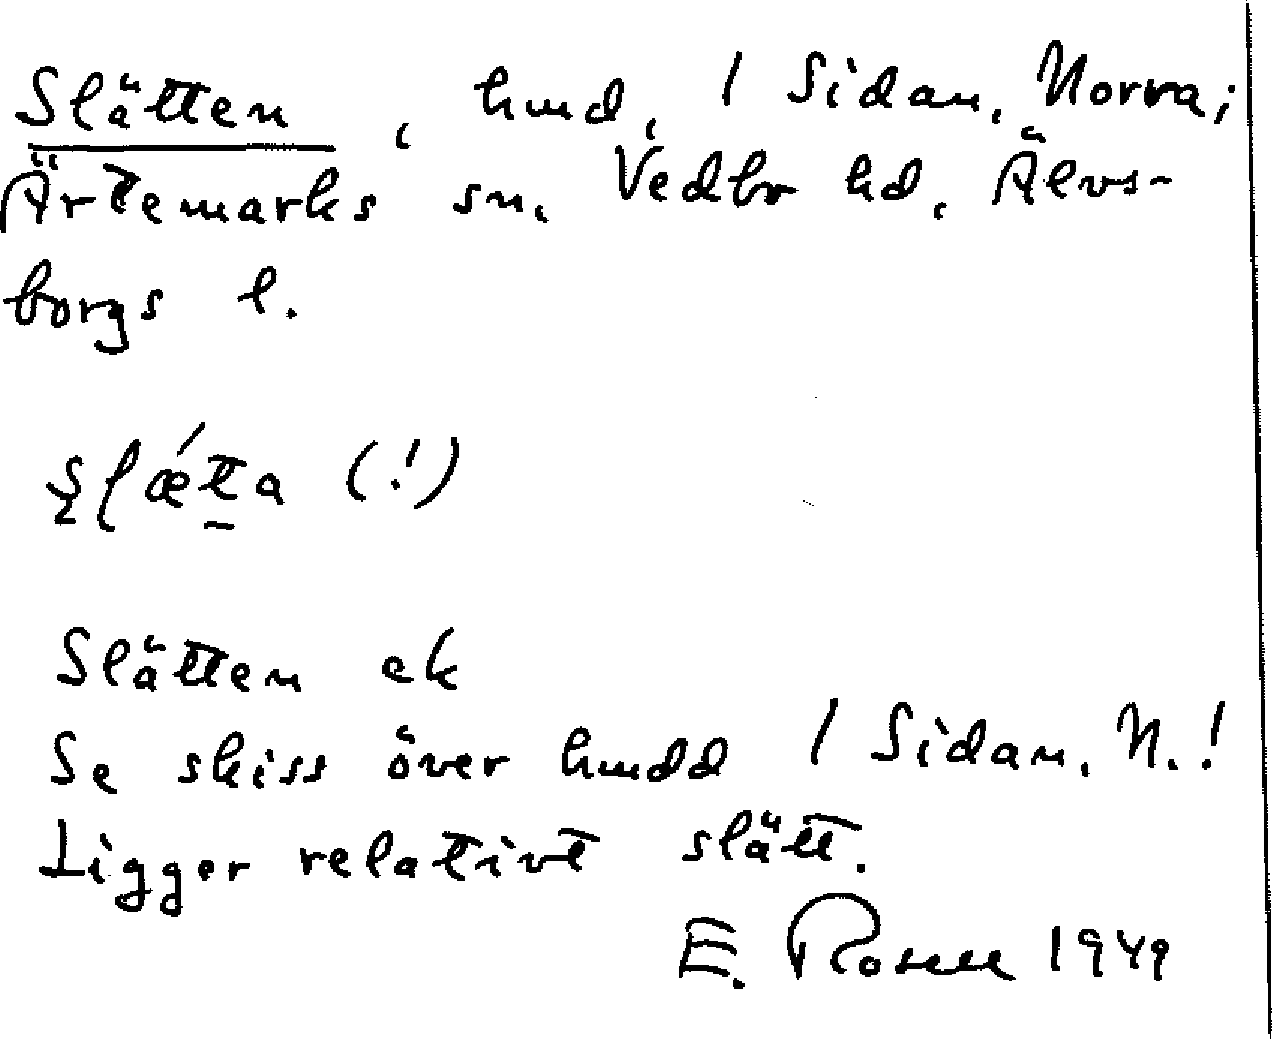 Slätten, hmd, 1 Sidan, Norra;
Ärtemarks sn, Vedbo hd, Älvs-
borgs l.
slǽta (!)
Slätten ek
Se skiss över hmdd 1 Sidan, N.!
Ligger relativt slätt.
E. Rosell 1949